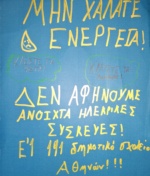 ΜΗΝ ΧΑΛΑΤΕ
ΕΝΕΡΓΕΙΑ!
ΔΕΝ ΑΦΗΝΟΥΜΕ
ΑΝΟΙΧΤΑ ΗΛΕΚΡΙΚΕΣ
ΣΥΣΚΕΥΕΣ!
Ε'1 191 δημοτικό σχολείο
Αθηνών!!!